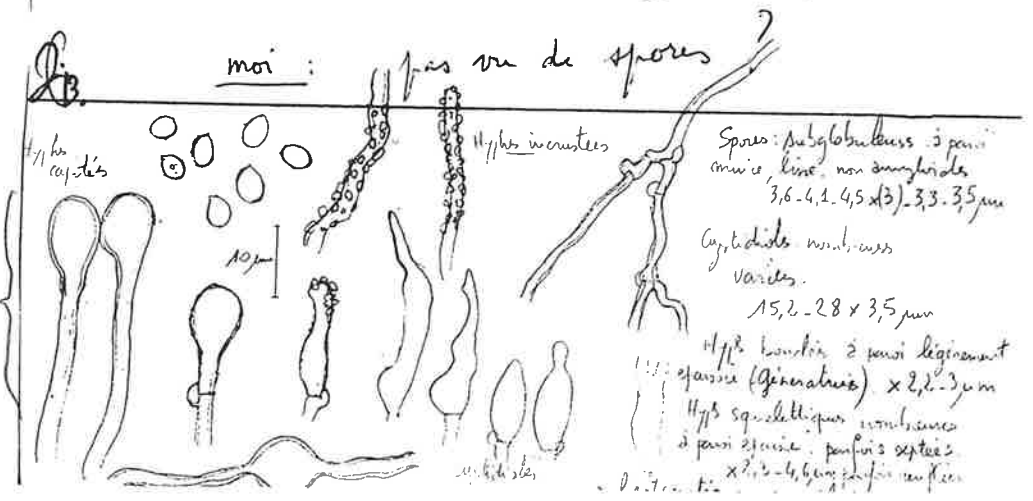 moi : pas vu de spores
?
Hyphes
capités
Hyphes incrustées
10 µm
Spores : subglobuleuses à paroi
mince, lisse, non amyloïdes
3,6-4,1-4,5 x (3)-3,3-3,5 µm
Cystidioles nombreuses
variées.
15,2-28 x 3,5 µm
Hyphes bouclées à paroi légèrement
épaissie (Génératrices) x 2,2-3 µm
Hyphes squelettiques nombreuses
à paroi épaisse, parfois septées
x 2,3-4,6 µm parfois